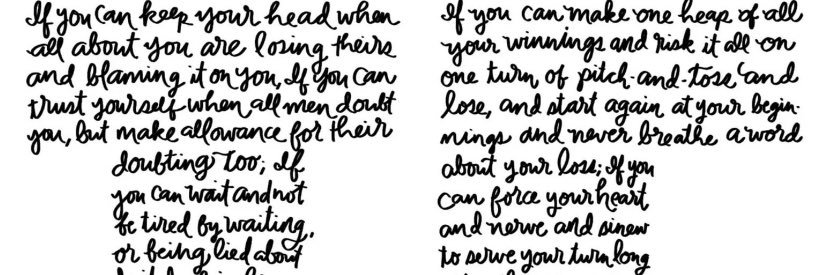 If you can keep your head when
all about you are losing theirs
and blaming it on you, If you can
trust yourself when all men doubt
you, but make allowance for their
doubting too; If
you can wait and not
be tired by waiting,
or being lied about
If you can make one heap of all
your winnings and risk it all on
one turn of pitch-and-toss, and
lose, and start again at your begin-
nings and never breathe a word
about your loss; If you
can force your heart
and nerve and sinew
to serve your turn long